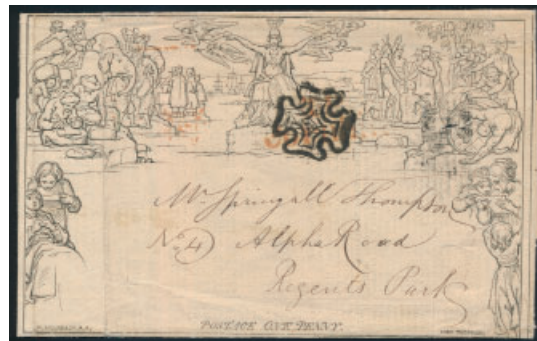 Mr. Springall Thompson
No. 4 Alpha Road
Regents Park
POSTAGE ONE PENNY.